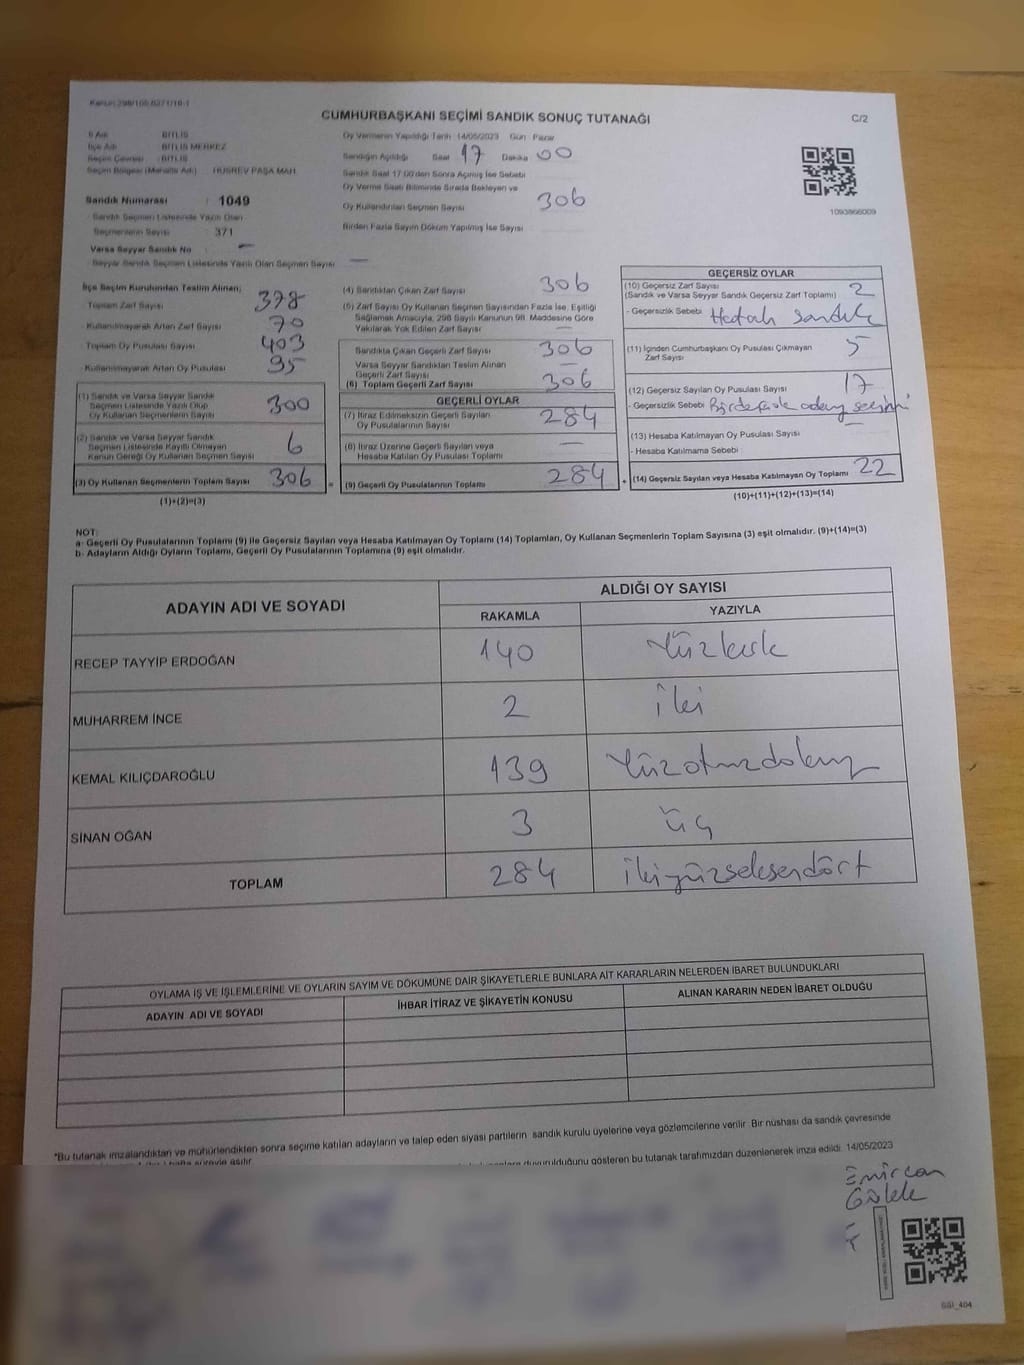 Kanun:298/105-6271/16-1
CUMHURBAŞKANI SEÇİMİ SANDIK SONUÇ TUTANAĞI
C/2
İl Adı : BİTLİS
İlçe Adı : BİTLİS MERKEZ
Seçim Çevresi : BİTLİS
Seçim Bölgesi (Mahalle Adı) : HÜSREV PAŞA MAH.
Sandık Numarası : 1049
Sandık Seçmen Listesinde Yazılı Olan
Seçmenlerin Sayısı : 371
Varsa Seyyar Sandık No : -
Seyyar Sandık Seçmen Listesinde Yazılı Olan Seçmen Sayısı —
Oy Vermenin Yapıldığı Tarih 14/05/2023 Gün Pazar
Sandığın Açıldığı Saat 17 Dakika 00
Sandık Saat 17.00'den Sonra Açılmış İse Sebebi
Oy Verme Saati Bitiminde Sırada Bekleyen ve
Oy Kullandırılan Seçmen Sayısı 306
Birden Fazla Sayım Döküm Yapılmış İse Sayısı
1093866009
İlçe Seçim Kurulundan Teslim Alınan;
Toplam Zarf Sayısı 378
Kullanılmayarak Artan Zarf Sayısı 70
Toplam Oy Pusulası Sayısı 403
Kullanılmayarak Artan Oy Pusulası 95
(1) Sandık ve Varsa Seyyar Sandık
Seçmen Listesinde Yazılı Olup
Oy Kullanan Seçmenlerin Sayısı 300
(2) Sandık ve Varsa Seyyar Sandık
Seçmen Listesinde Kayıtlı Olmayan
Kanun Gereği Oy Kullanan Seçmen Sayısı 6
(3) Oy Kullanan Seçmenlerin Toplam Sayısı 306 =
(1)+(2)=(3)
(4) Sandıktan Çıkan Zarf Sayısı 306
(5) Zarf Sayısı Oy Kullanan Seçmen Sayısından Fazla İse, Eşitliği
Sağlamak Amacıyla, 298 Sayılı Kanunun 98. Maddesine Göre
Yakılarak Yok Edilen Zarf Sayısı —
Sandıkta Çıkan Geçerli Zarf Sayısı 306
Varsa Seyyar Sandıktan Teslim Alınan
Geçerli Zarf Sayısı —
(6) Toplam Geçerli Zarf Sayısı 306
GEÇERLİ OYLAR
(7) İtiraz Edilmeksizin Geçerli Sayılan
Oy Pusulalarının Sayısı 284
(8) İtiraz Üzerine Geçerli Sayılan veya
Hesaba Katılan Oy Pusulası Toplamı —
(9) Geçerli Oy Pusulalarının Toplamı 284 +
GEÇERSİZ OYLAR
(10) Geçersiz Zarf Sayısı
(Sandık ve Varsa Seyyar Sandık Geçersiz Zarf Toplamı) 2
- Geçersizlik Sebebi Hatalı sandık
(11) İçinden Cumhurbaşkanı Oy Pusulası Çıkmayan
Zarf Sayısı 5
(12) Geçersiz Sayılan Oy Pusulası Sayısı 17
- Geçersizlik Sebebi
(13) Hesaba Katılmayan Oy Pusulası Sayısı —
- Hesaba Katılmama Sebebi
(14) Geçersiz Sayılan veya Hesaba Katılmayan Oy Toplamı 22
(10)+(11)+(12)+(13)=(14)
NOT:
a- Geçerli Oy Pusulalarının Toplamı (9) ile Geçersiz Sayılan veya Hesaba Katılmayan Oy Toplamı (14) Toplamları, Oy Kullanan Seçmenlerin Toplam Sayısına (3) eşit olmalıdır. (9)+(14)=(3)
b- Adayların Aldığı Oyların Toplamı, Geçerli Oy Pusulalarının Toplamına (9) eşit olmalıdır.
ADAYIN ADI VE SOYADI
ALDIĞI OY SAYISI
RAKAMLA YAZIYLA
RECEP TAYYİP ERDOĞAN 140 Yüzkırk
MUHARREM İNCE 2 iki
KEMAL KILIÇDAROĞLU 139 Yüzotuzdokuz
SİNAN OĞAN 3 üç
TOPLAM 284 ikiyüzseksendört
OYLAMA İŞ VE İŞLEMLERİNE VE OYLARIN SAYIM VE DÖKÜMÜNE DAİR ŞİKAYETLERLE BUNLARA AİT KARARLARIN NELERDEN İBARET BULUNDUKLARI
ADAYIN ADI VE SOYADI İHBAR İTİRAZ VE ŞİKAYETİN KONUSU ALINAN KARARIN NEDEN İBARET OLDUĞU
*Bu tutanak imzalandıktan ve mühürlendikten sonra seçime katılan adayların ve talep eden siyasi partilerin sandık kurulu üyelerine veya gözlemcilerine verilir. Bir nüshası da sandık çevresinde
duyurulduğunu gösteren bu tutanak tarafımızdan düzenlenerek imza edildi. 14/05/2023
Emircan
SGI_404